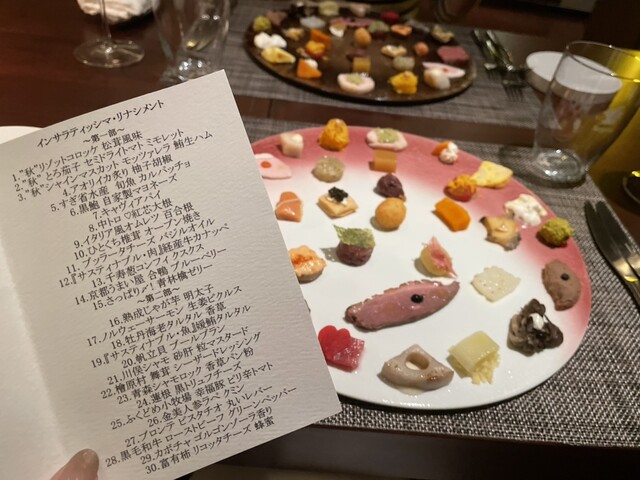 インサラティッシマ・リナシメント
~第一部~
1."秋"リゾットコロッケ 松茸風味
2."秋" とろ茄子 セミドライトマト ミモレット
3."秋" シャインマスカット モッツァレラ 鮪生ハム
4.アオリイカ炙り 柚子胡椒
5.すさ省水産 旬魚 カルパッチョ
6.黒鮑 自家製マヨネーズ
7.キャヴィアパイ
8.中トロ 紅芯大根
9.イタリア風オムレツ 百合根
10.ひとくち椎茸 オーブン焼き
11.ブッラータチーズ バジルオイル
12.『サスティナブル・肉』経産牛カナッペ
13.千寿葱コンフィ クスクス
14.京都うまい屋 合鴨 ブルーベリー
15.さっぱり〆! 青林檎ゼリー
~第二部~
16.熟成じゃが芋 明太子
17.ノルウェーサーモン 生姜ピクルス
18.牡丹海老タルタル 香草
19.『サスティナブル・魚』鰹鮪タルタル
20.帆立貝 ブールブラン
21.川俣シャモ 砂肝 粒マスタード
22.檜原村 舞茸 シーザードレッシング
23.青森シャモロック 香草パン粉
24.蓮根 黒トリュフチーズ
25.ふくどめ小牧場 幸福豚 ピリ辛トマト
26.金美人参ラペ クミン
27.ブロンテ ピスタチオ 丸いレバー
28.黒毛和牛 ローストビーフ グリーンペッパー
29.カボチャ ゴルゴンゾーラ香り
30.富有柿 リコッタチーズ 蜂蜜